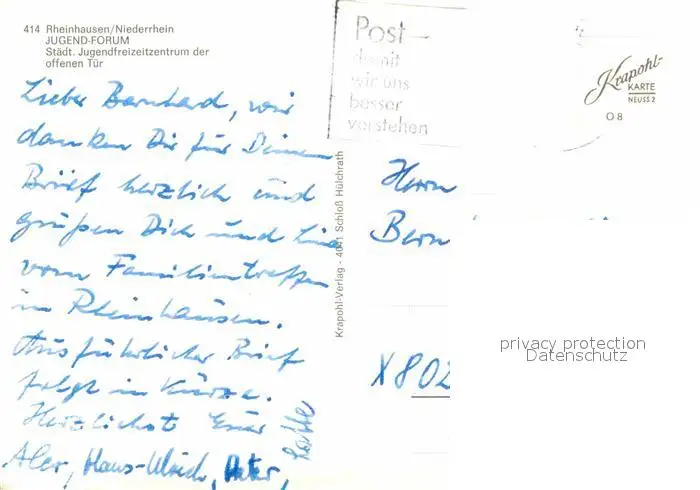 414 Rheinhausen/Niederrhein
JUGEND-FORUM
Städt. Jugendfreizeitzentrum der
offenen Tür
Lieber Bernhard, wir
danken Dir für Deinen
Brief herzlich und
grüßen Dich und
vom Familientreffen
in Rheinhausen.
Ausführlicher Brief
folgt in Kürze.
Herzlichst Euer
Hans-Ulrich, Peter,
Lotte
Krapohl-Verlag - 4041 Schloß Hülchrath
Post-
damit
wir uns
besser
verstehen
Krapohl-
KARTE
NEUSS 2
O 8
Herrn
Bern
X 802
privacy protection
Datenschutz